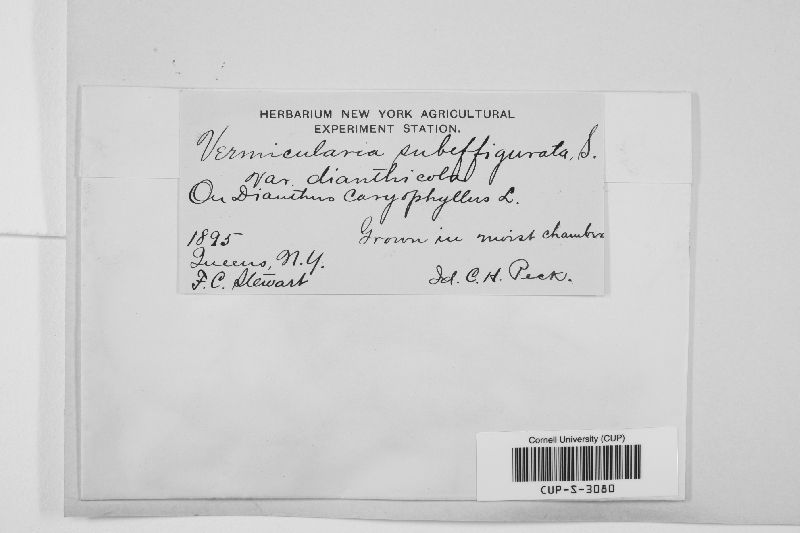 HERBARIUM NEW YORK AGRICULTURAL
EXPERIMENT STATION.
Vermicularia subeffigurata, S.
Var. dianthicola
On Dianthus Caryophyllus L.
1895 Grown in moist chamber
Queens, N.Y.
F.C. Stewart Id. C.H. Peck.
Cornell University (CUP)
CUP-S-3080